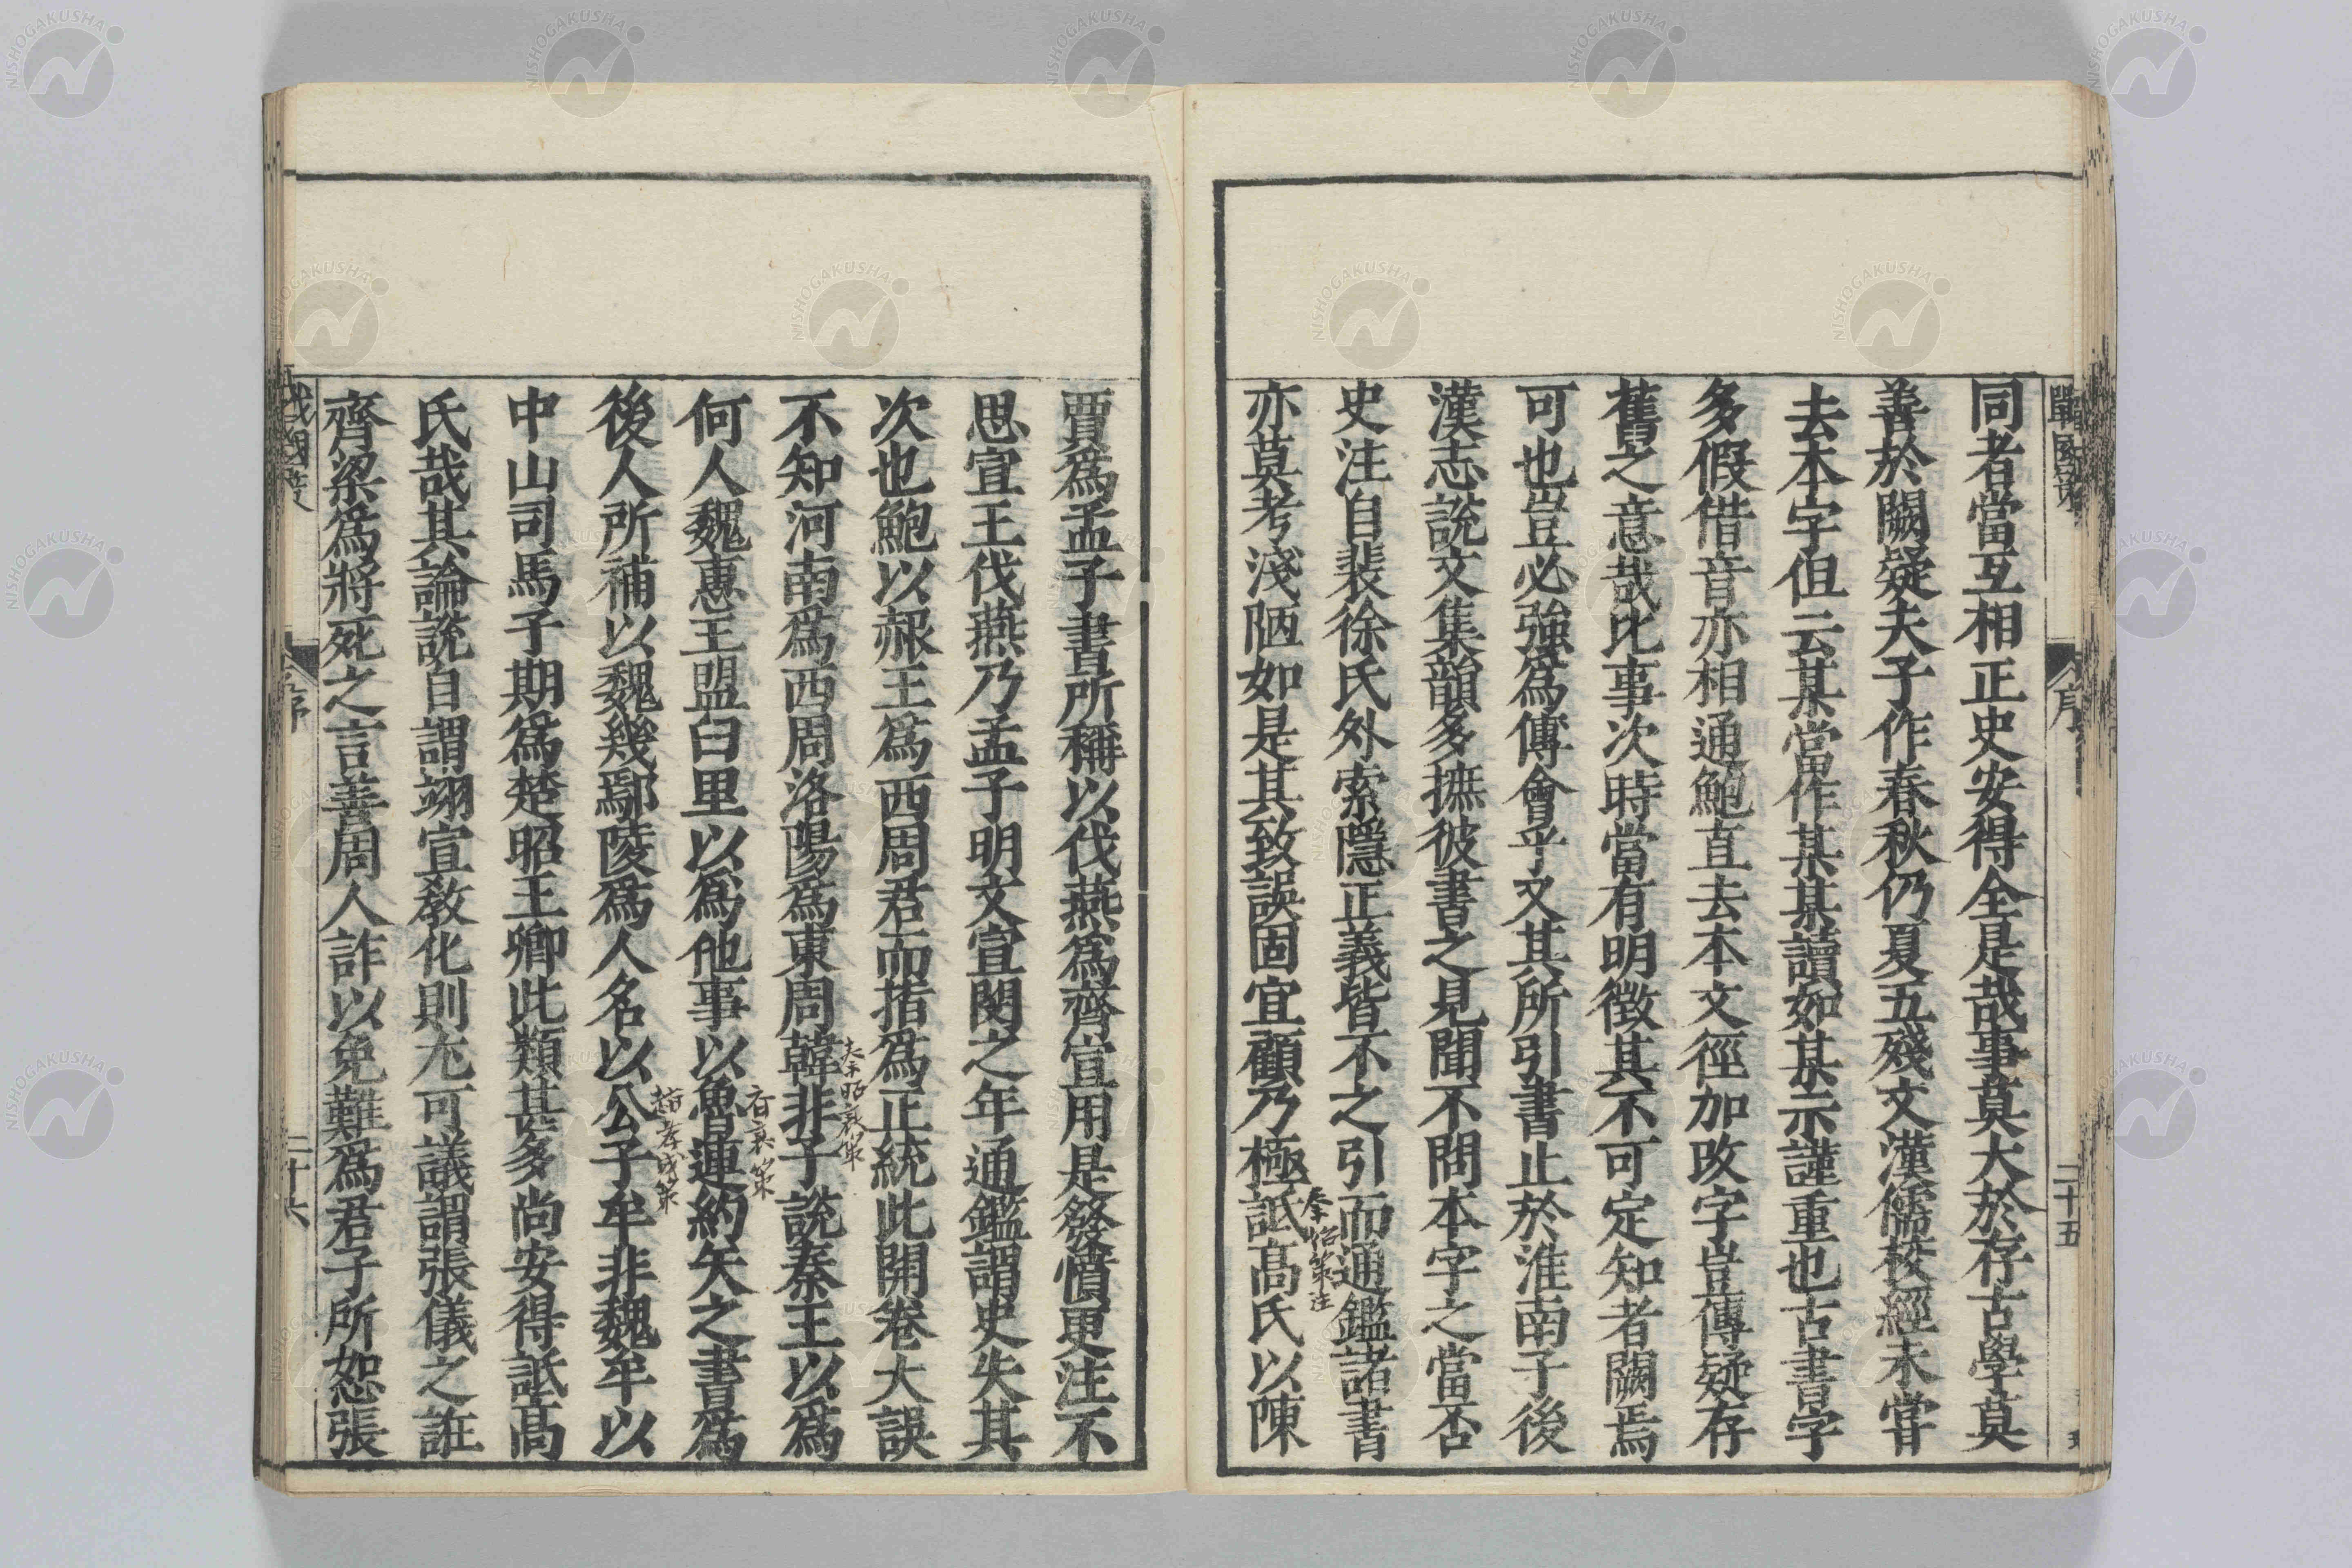 戰國策
序
二十五
同者當互相正史安得全是哉事莫大於存古學莫
善於闕疑夫子作春秋仍夏五殘文漢儒校經未甞
去本字但云某當作某某讀如某示謹重也古書字
多假借音亦相通鮑直去本文徑加改字豈傳疑存
舊之意哉比事次時當有明徵其不可定知者闕焉
可也豈必強爲傳會乎又其所引書止於淮南子後
漢志說文集韻多摭彼書之見聞不問本字之當否
史注自裴徐氏外索隱正義皆不之引而通鑑諸書
亦莫考淺陋如是其致誤固宜顧乃極詆高氏以陳
秦昭策注
賈爲孟子書所稱以伐燕爲齊宣用是發憤更注不
思宣王伐燕乃孟子明文宣閔之年通鑑謂史失其
次也鮑以赧王爲西周君而指爲正統此開卷大誤
不知河南爲西周洛陽爲東周韓非子說秦王以爲
秦昭襄策
何人魏惠王盟臼里以爲他事以魯連約矢之書爲
齊襄策
後人所補以魏幾鄢陵爲人名以公子牟非魏牟以
趙孝成策
中山司馬子期爲楚昭王卿此類甚多尚安得詆高
氏哉其論說自謂翊宣教化則尤可議謂張儀之誑
齊梁爲將死之言善周人詐以免難爲君子所恕張
戰國策
序
二十六
NISHOGAKUSHA